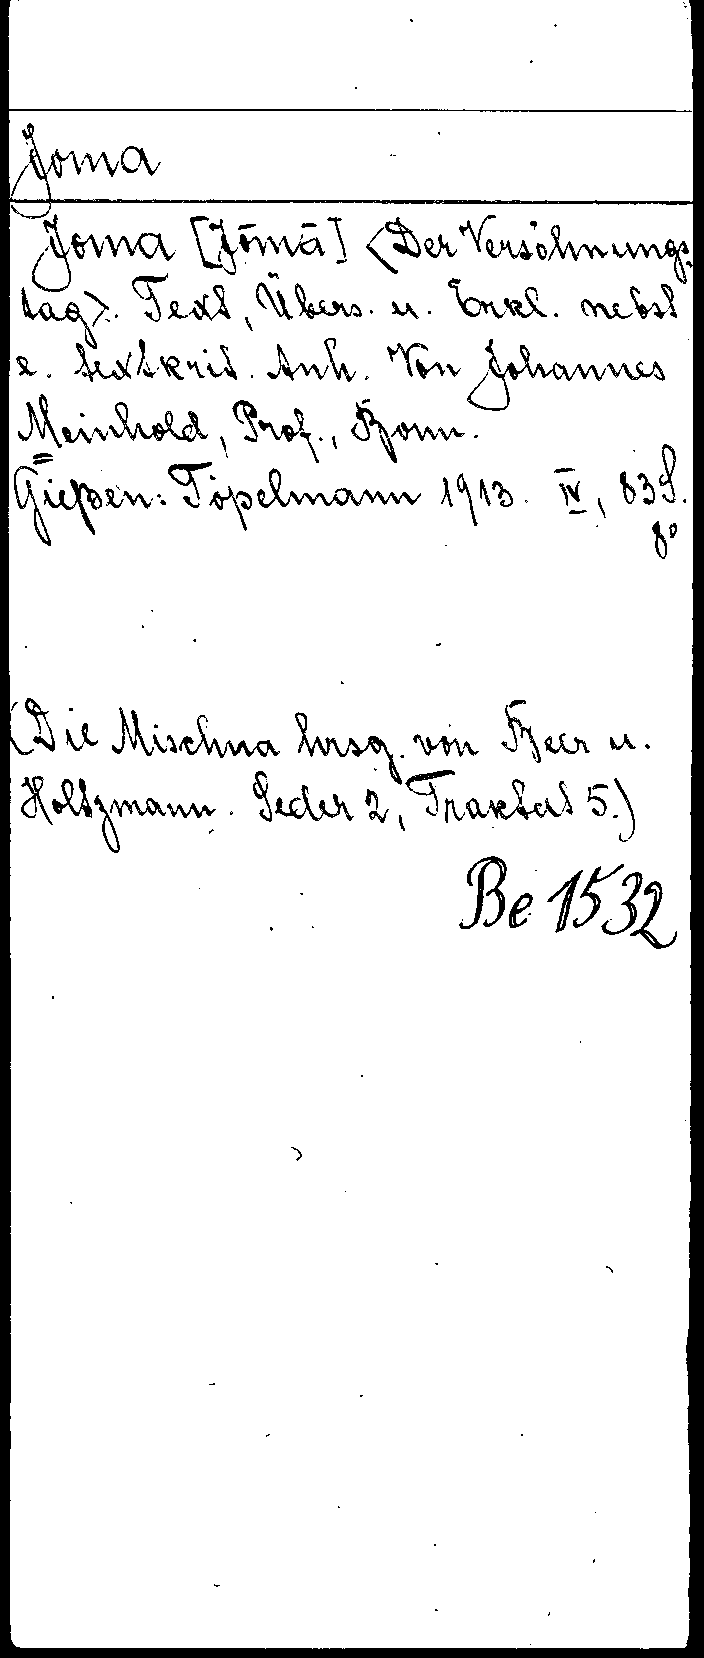 Joma
Joma [Jōmā] <Der Versöhnungs-
tag>. Text, Übers. u. Erkl. nebst
e. textkrit. Anh. Von Johannes
Meinhold, Prof., Bonn.
Gießen: Töpelmann 1913. IV, 83 S.
8°
(Die Mischna hrsg. von Beer u.
Holtzmann. Seder 2, Traktat 5.)
Be 1532